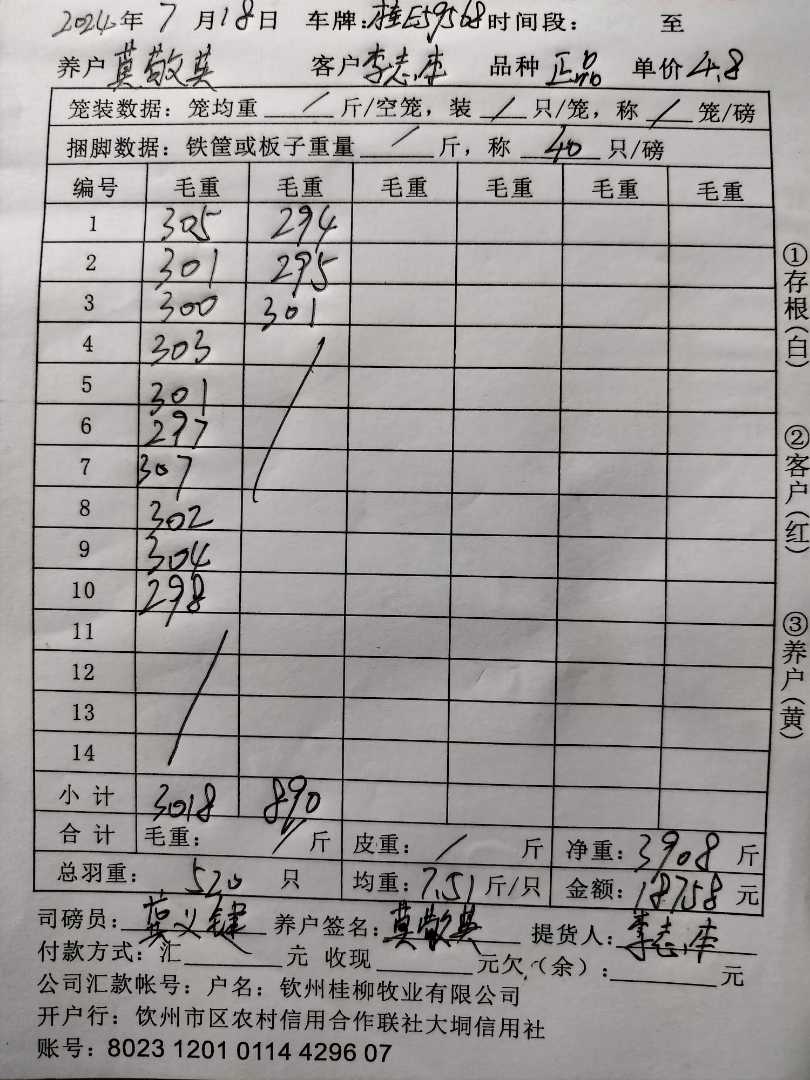 2024年 7 月18日 车牌:桂E59568 时间段: 至
养户 莫敬英 客户 李志 品种 正品 单价 4.8
笼装数据: 笼均重 / 斤/空笼, 装 / 只/笼, 称 / 笼/磅
捆脚数据: 铁筐或板子重量 / 斤, 称 40 只/磅
编号 毛重 毛重 毛重 毛重 毛重 毛重
1 305 294
2 301 295
3 300 301
4 303 /
5 301
6 297
7 307
8 302
9 304
10 298
11 /
12
13
14
小 计 3018 890
合 计 毛重: / 斤 皮重: / 斤 净重: 3908 斤
总羽重: 520 只 均重: 7.51 斤/只 金额: 18758 元
司磅员: 义键 养户签名: 莫敬英 提货人: 李志
付款方式: 汇 元 收现 元欠(余): 元
公司汇款帐号: 户名: 钦州桂柳牧业有限公司
开户行: 饮州市区农村信用合作联社大垌信用社
账号: 8023 1201 0114 4296 07
①存根(白)
②客户(红)
③养户(黄)